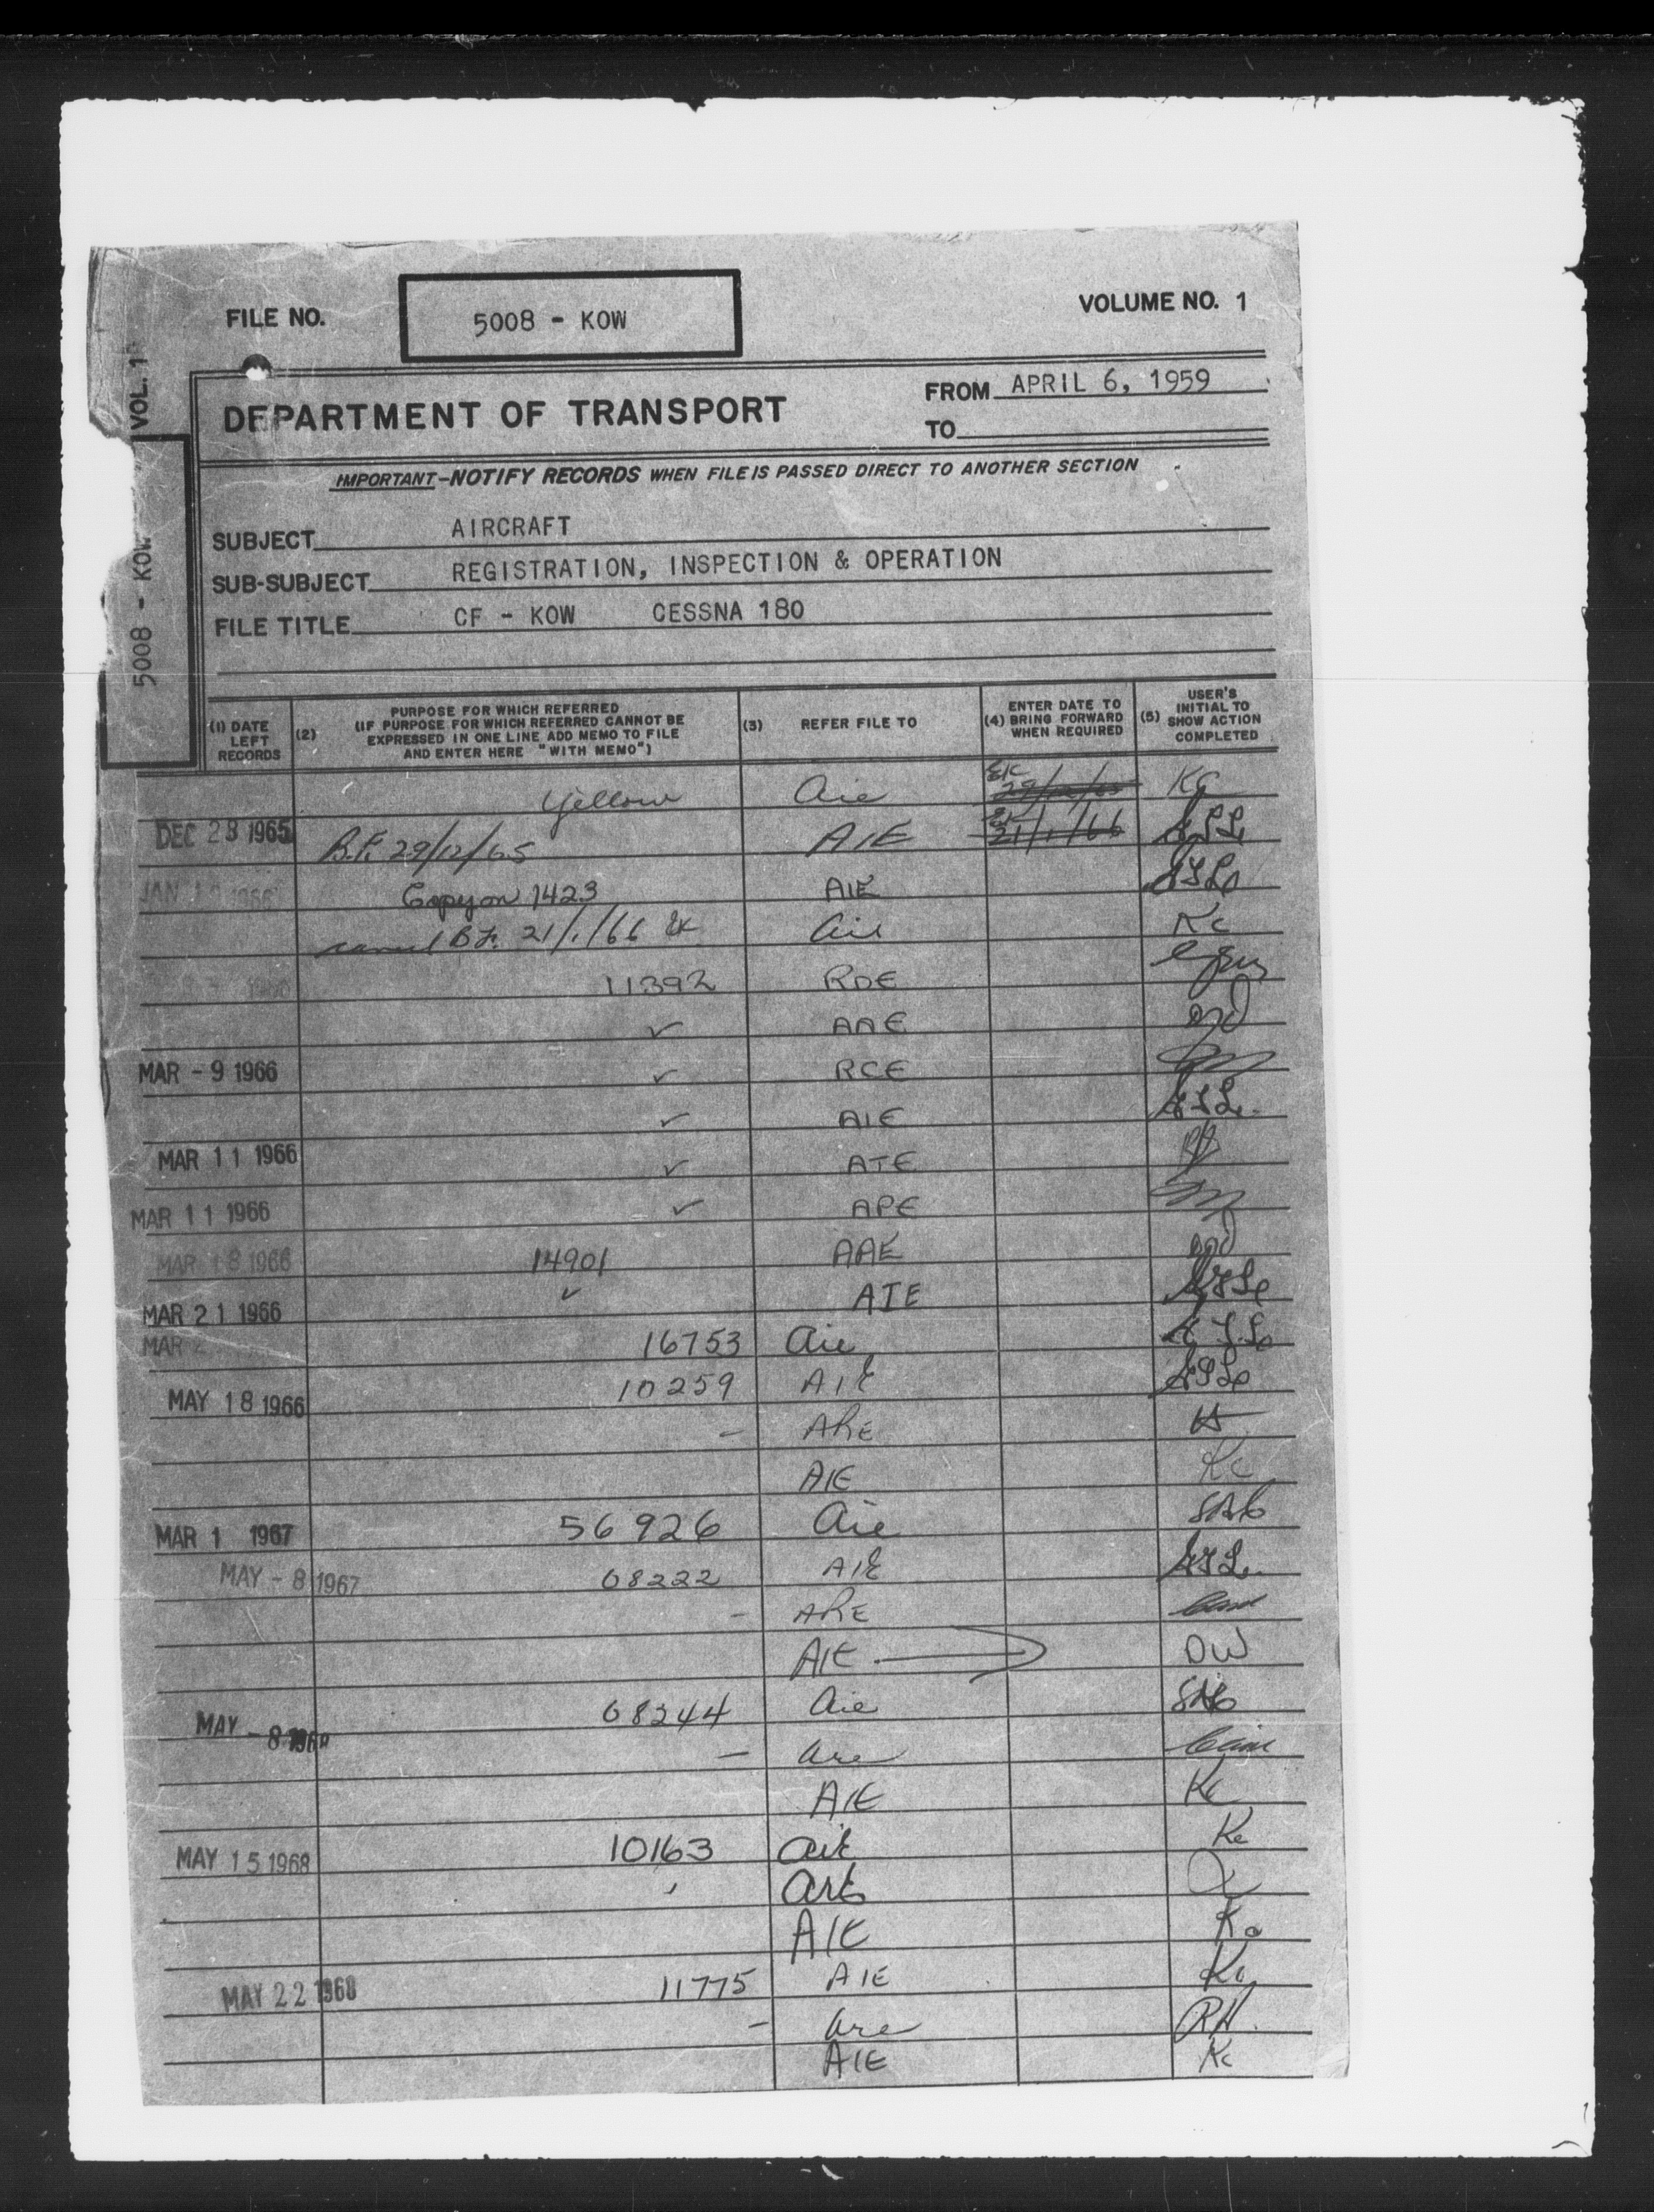 FILE NO. 5008 - KOW VOLUME NO. 1
VOL. 1
5008 - KOW
FROM APRIL 6, 1959
DEPARTMENT OF TRANSPORT
TO
IMPORTANT-NOTIFY RECORDS WHEN FILE IS PASSED DIRECT TO ANOTHER SECTION
SUBJECT AIRCRAFT
SUB-SUBJECT REGISTRATION, INSPECTION & OPERATION
FILE TITLE CF - KOW CESSNA 180
(1) DATE LEFT RECORDS
(2) PURPOSE FOR WHICH REFERRED
(IF PURPOSE FOR WHICH REFERRED CANNOT BE
EXPRESSED IN ONE LINE ADD MEMO TO FILE
AND ENTER HERE "WITH MEMO")
(3) REFER FILE TO
(4) ENTER DATE TO BRING FORWARD WHEN REQUIRED
(5) USER'S INITIAL TO SHOW ACTION COMPLETED
Yellow Aie 29/12/65
DEC 28 1965 B.F. 29/12/65 AIE 21/1/66
JAN 1966 Copy on 1423 AIE
B.F. 21/1/66 Aie Kc
11392 RDE
✓ AAE
MAR - 9 1966 ✓ RCE
✓ AIE
MAR 11 1966 ✓ ATE
MAR 11 1966 ✓ APE
MAR 18 1966 14901 AAE
MAR 21 1966 ✓ AIE
MAR 16753 Aie
MAY 18 1966 10259 AIE
- ARE
AIE Kc
MAR 1 1967 56926 Aie
MAY - 8 1967 68222 AIE
- ARE
AIE DW
MAY - 8 68244 Aie
- Are
AIE Kc
MAY 15 1968 10163 AIE Kc
ARE
AIE
MAY 22 1968 11775 AIE
- Are RH.
AIE Kc